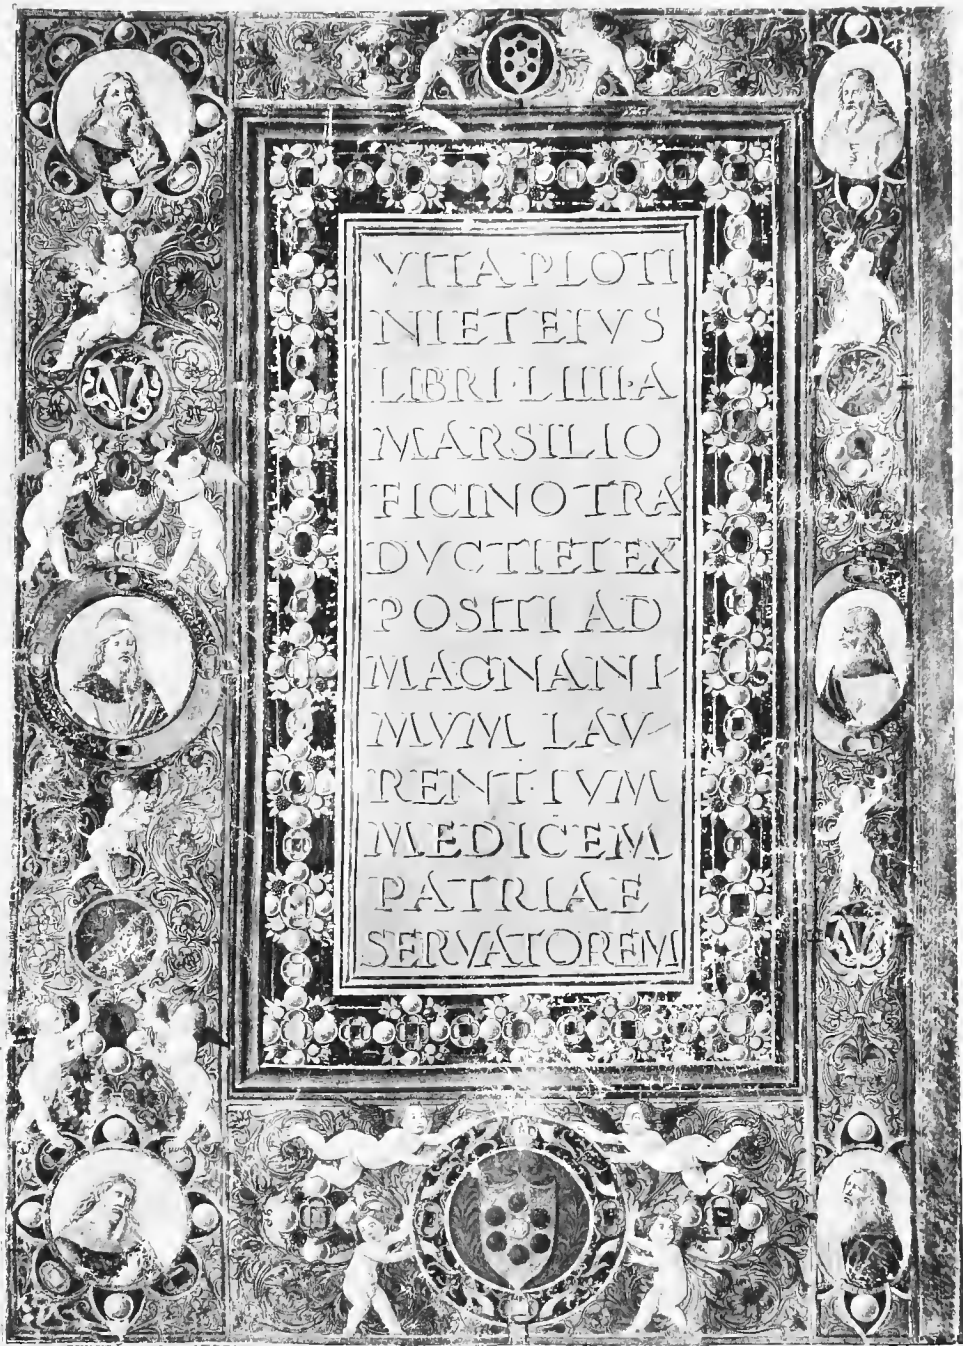 VITA PLOTI
NI ET EIVS
LIBRI·LIIII·A
MARSILIO
FICINO TRA
DVCTI ET EX
POSITI AD
MAGNANI-
MVM LAV-
RENT·IVM
MEDICEM
PATRIAE
SERVATOREM